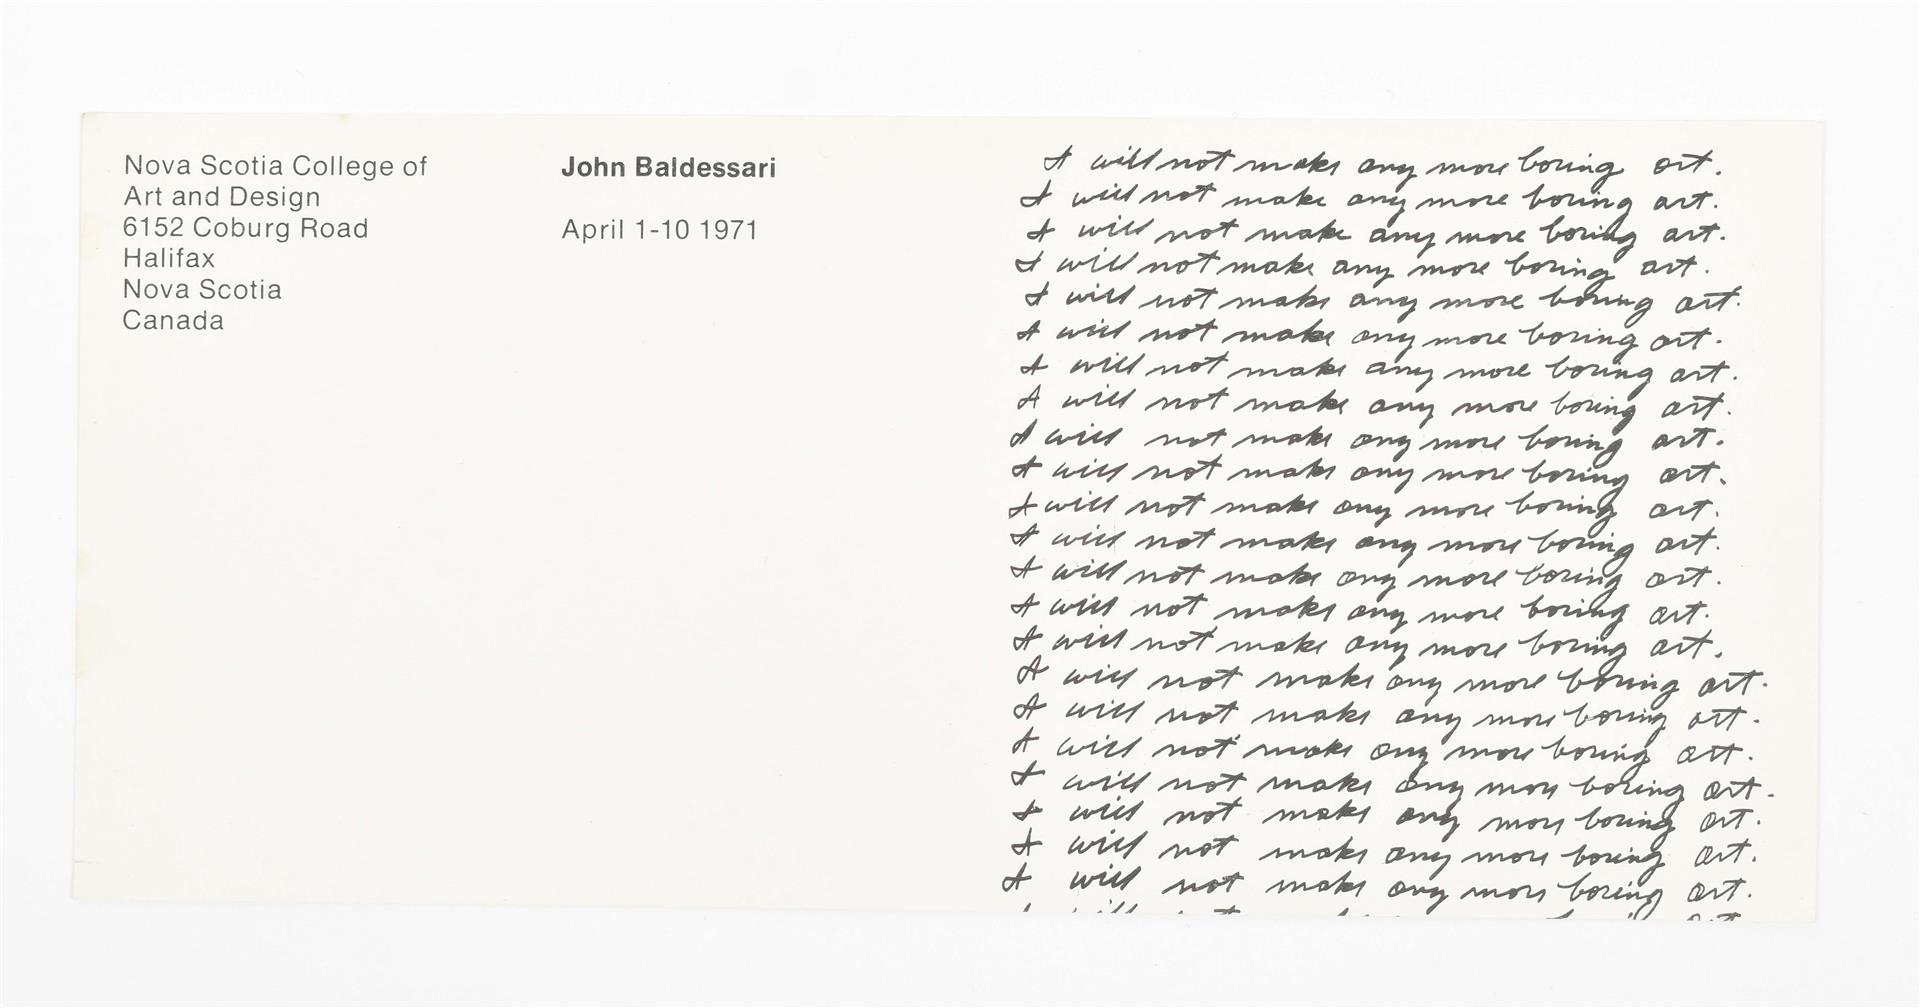 Nova Scotia College of
Art and Design
6152 Coburg Road
Halifax
Nova Scotia
Canada
John Baldessari
April 1-10 1971
I will not make any more boring art.
I will not make any more boring art.
I will not make any more boring art.
I will not make any more boring art.
I will not make any more boring art.
I will not make any more boring art.
I will not make any more boring art.
I will not make any more boring art.
I will not make any more boring art.
I will not make any more boring art.
I will not make any more boring art.
I will not make any more boring art.
I will not make any more boring art.
I will not make any more boring art.
I will not make any more boring art.
I will not make any more boring art.
I will not make any more boring art.
I will not make any more boring art.
I will not make any more boring art.
I will not make any more boring art.
I will not make any more boring art.
I will not make any more boring art.